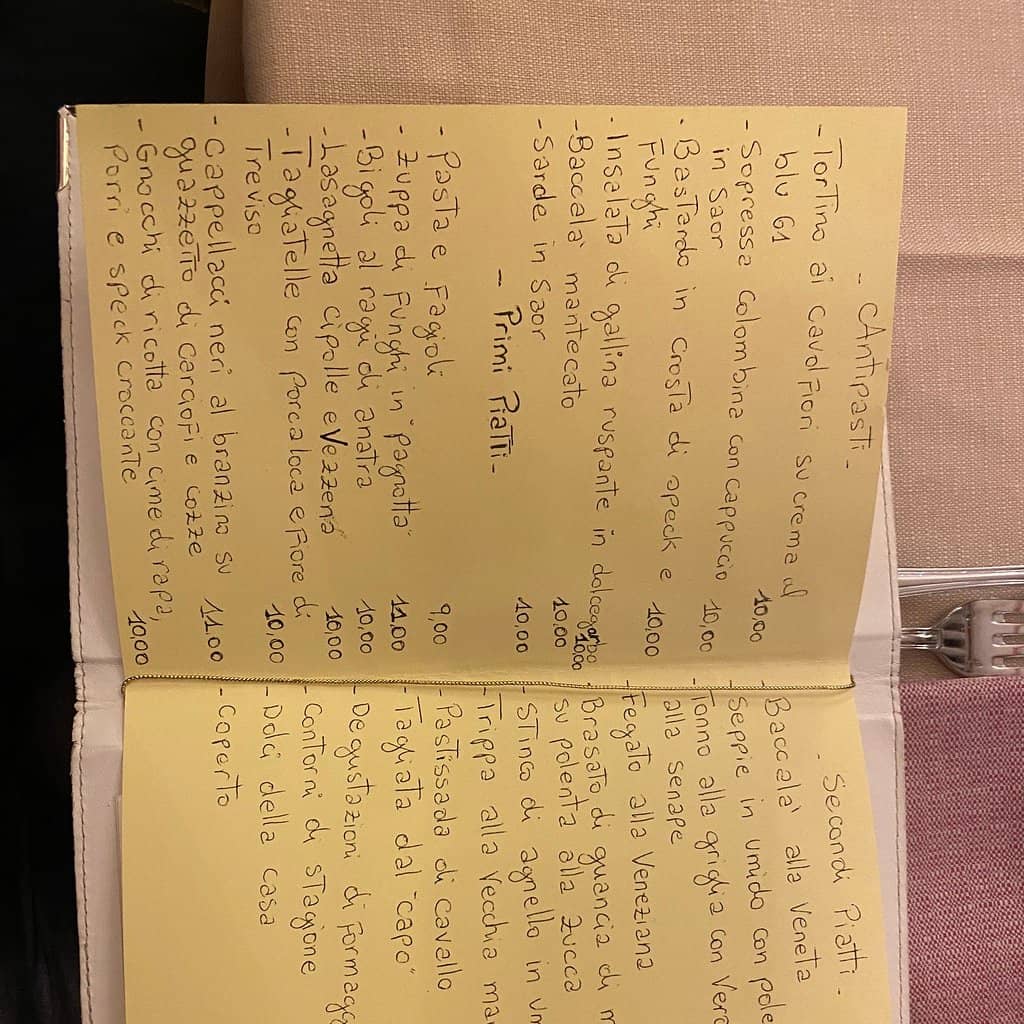 - Antipasti -
- Tortino ai cavolfiori su crema al
blu 61 10,00
- Sopressa colombina con cappuccio
in Saor 10,00
- Bastardo in crosta di speck e
Funghi 10,00
- Insalata di gallina ruspante in dolcegarbo 10,00
- Baccala' mantecato 10,00
- Sarde in Saor 10,00
- Primi Piatti -
- Pasta e Fagioli 9,00
- Zuppa di Funghi in "pagnotta" 11,00
- Bigoli al ragù di anatra 10,00
- Lasagnetta cipolle e Vezzena 10,00
- Tagliatelle con Porcaloca e Fiore di
Treviso 10,00
- Cappellacci neri al branzino su
guazzetto di carciofi e cozze 11,00
- Gnocchi di ricotta con cime di rapa,
Porri e speck croccante 10,00
- Secondi Piatti -
- Baccala' alla Veneta
- Seppie in umido con pole
- Tonno alla griglia con Verd
alla senape
- Fegato alla Veneziana
- Brasato di guancia di m
su polenta alla zucca
- Stinco di agnello in um
- Trippa alla Vecchia ma
- Pastissada di cavallo
- Tagliata dal "capo"
- Degustazioni di Formagg
- Contorni di stagione
- Dolci della casa
- Coperto